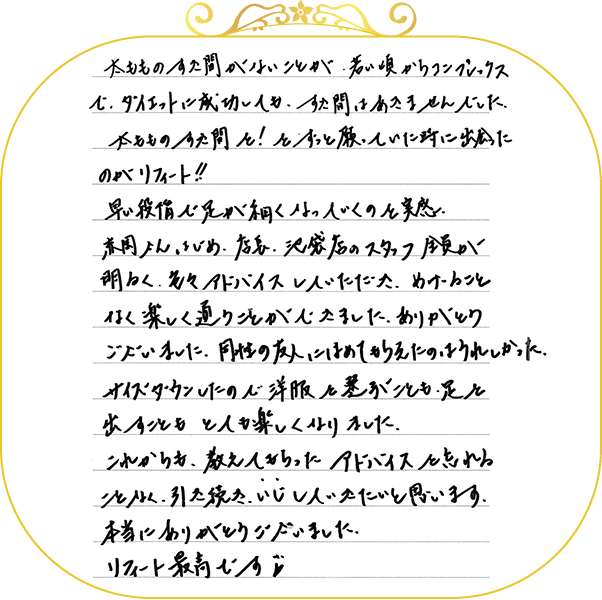 太もものすき間がないことが、若い頃からコンプレックス
で、ダイエットに成功しても、すき間はあきませんでした。
太もものすき間を！とずっと願っていた時に出会った
のがリフィート!!
早い段階で足が細くなっていくのを実感。
廣岡さん、はじめ、店長、池袋店のスタッフ全員が
明るく、色々アドバイスしていただき、めげること
なく楽しく通うことができました。ありがとう
ございました。同性の友人にほめてもらえたのはうれしかった。
サイズダウンしたので洋服を選ぶことも、足を
出すことも とても楽しくなりました。
これからも、教えてもらった アドバイスを忘れる
ことなく、引き続き、維持していきたいと思います。
本当にありがとうございました。
リフィート最高です